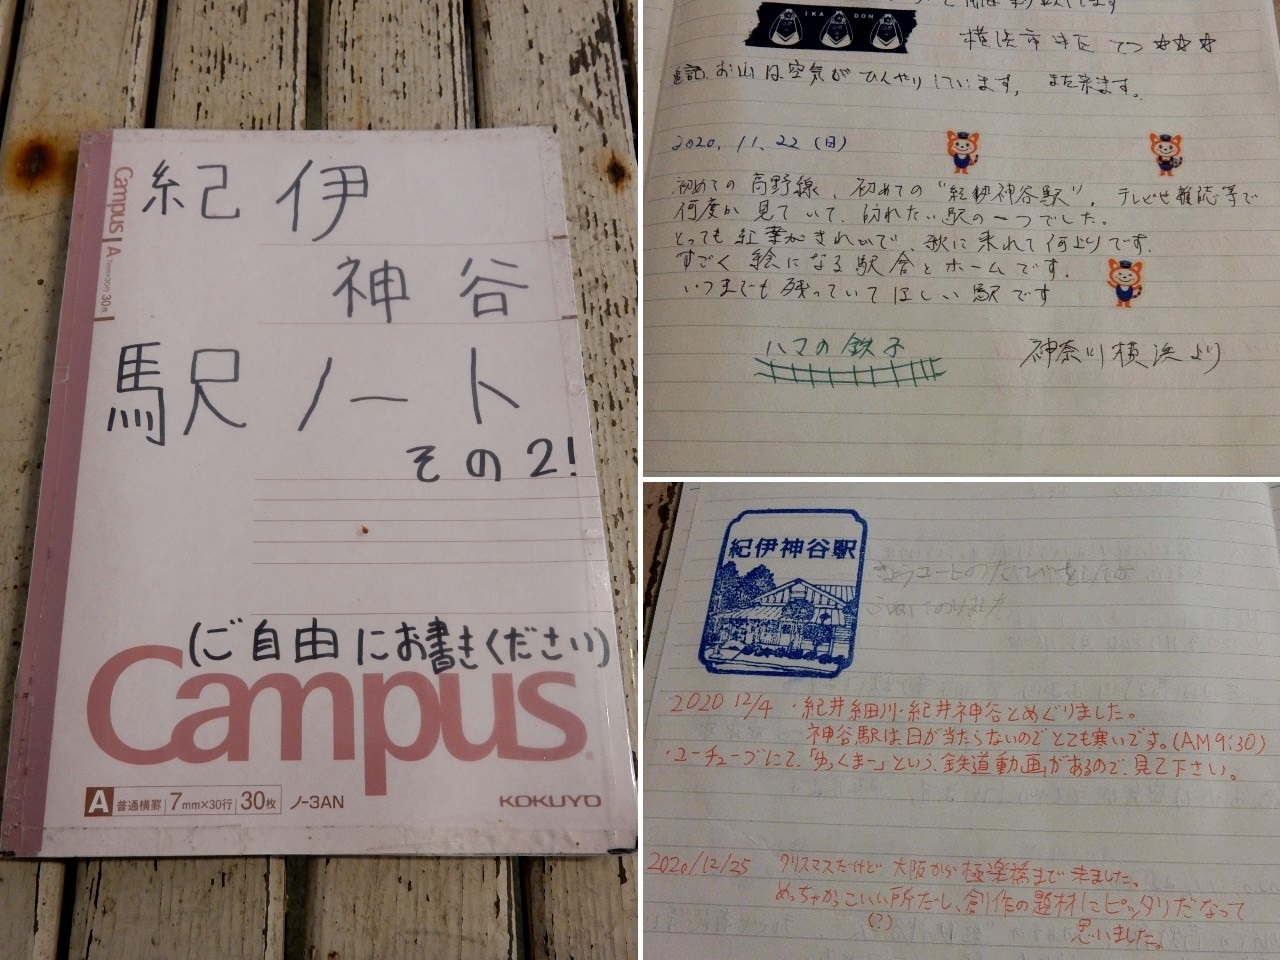 Campus
A
7mm×30行
30枚
紀伊
神谷
駅ノート
その2!
(ご自由にお書きください)
Campus
A 普通横罫 7mm×30行 30枚 ノ-3AN
KOKUYO
IKA DON
横浜市 てつ☆☆☆
追記 お山は空気がひんやりしています。また来ます。
2020.11.22(日)
初めての高野線、初めての"紀伊神谷駅"。テレビや雑誌等で
何度か見ていて、訪れたい駅の一つでした。
とっても紅葉がきれいで、秋に来れて何よりです。
すごく絵になる駅舎とホームです。
いつまでも残っていてほしい駅です
ハマの鉄子
神奈川横浜より
紀伊神谷駅
2020 12/4 ・紀井細川・紀井神谷とめぐりました。
神谷駅は日が当たらないのでとても寒いです。(AM9:30)
・ユーチューブにて「ゆっくまー」という、鉄道動画があるので、見て下さい。
2020/12/25 クリスマスだけど大阪から極楽橋まで来ました。
めっちゃかっこいい所だし、創作の題材にピッタリだなって
(?) 思いました。